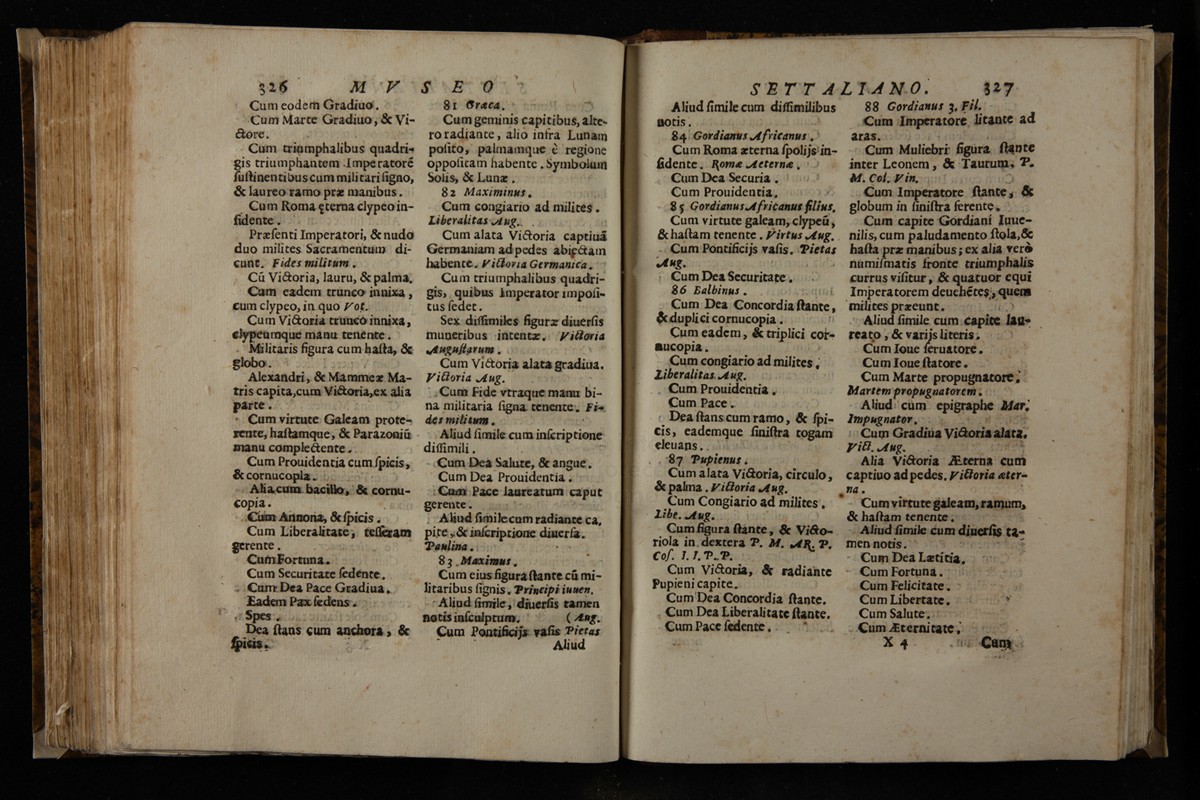 326 MVSEO
Cum eodem Gradiuo.
Cum Marte Gradiuo, & Vi-
ctore.
Cum triumphalibus quadri-
gis triumphantem Imperatorē
ſuſtinentibus cum militari ſigno,
& laureo ramo præ manibus.
Cum Roma ęterna clypeo in-
ſidente.
Præſenti Imperatori, & nudo
duo milites Sacramentum di-
cunt. Fides militum.
Cū Victoria, lauru, & palma.
Cum eadem trunco innixa,
cum clypeo, in quo Vot.
Cum Victoria trunco innixa,
clypeumque manu tenente.
Militaris figura cum haſta, &
globo.
Alexandri, & Mammeæ Ma-
tris capita, cum Victoria, ex alia
parte.
Cum virtute Galeam prote-
rente, haſtamque, & Parazoniū
manu complectente.
Cum Prouidentia cum ſpicis,
& cornucopia.
Alia cum bacillo, & cornu-
copia.
Cum Annona, & ſpicis.
Cum Liberalitate, teſſeram
gerente.
Cum Fortuna.
Cum Securitate ſedente.
Cum Dea Pace Gradiua.
Eadem Pax ſedens.
Spes.
Dea ſtans cum anchora, &
ſpicis.
81 Græca.
Cum geminis capitibus, alte-
ro radiante, alio infra Lunam
poſito, palmamque è regione
oppoſitam habente. Symbolum
Solis, & Lunæ.
82 Maximinus.
Cum congiario ad milites.
Liberalitas Aug.
Cum alata Victoria captiuā
Germaniam ad pedes abiectam
habente. Victoria Germanica.
Cum triumphalibus quadri-
gis, quibus Imperator impoſi-
tus ſedet.
Sex diſſimiles figuræ diuerſis
muneribus intentæ. Victoria
Auguſtarum.
Cum Victoria alata gradiua.
Victoria Aug.
Cum Fide vtraque manu bi-
na militaria ſigna tenente. Fi-
des militum.
Aliud ſimile cum inſcriptione
diſſimili.
Cum Dea Salute, & angue.
Cum Dea Prouidentia.
Cum Pace laureatum caput
gerente.
Aliud ſimile cum radiante ca.
pite, & inſcriptione diuerſa.
Paulina.
83 Maximus.
Cum eius figura ſtante cū mi-
litaribus ſignis. Principi iuuen.
Aliud ſimile, diuerſis tamen
notis inſculptum. (Aug.
Cum Pontificijs vaſis Pietas
Aliud
SETTALIANO. 327
Aliud ſimile cum diſſimilibus
notis.
84 Gordianus Africanus.
Cum Roma æterna ſpolijs in-
ſidente. Romæ Aeternæ.
Cum Dea Securia.
Cum Prouidentia.
85 Gordianus Africanus filius.
Cum virtute galeam, clypeū,
& haſtam tenente. Virtus Aug.
Cum Pontificijs vaſis. Pietas
Aug.
Cum Dea Securitate.
86 Balbinus.
Cum Dea Concordia ſtante,
& duplici cornucopia.
Cum eadem, & triplici cor-
nucopia.
Cum congiario ad milites.
Liberalitas Aug.
Cum Prouidentia.
Cum Pace.
Dea ſtans cum ramo, & ſpi-
cis, eademque ſiniſtra togam
eleuans.
87 Pupienus.
Cum alata Victoria, circulo,
& palma. Victoria Aug.
Cum Congiario ad milites.
Libe. Aug.
Cum figura ſtante, & Victo-
riola in dextera P. M. AR. P.
Coſ. I. I. P. P.
Cum Victoria, & radiante
Pupieni capite.
Cum Dea Concordia ſtante.
Cum Dea Liberalitate ſtante.
Cum Pace ſedente.
88 Gordianus 3. Fil.
Cum Imperatore litante ad
aras.
Cum Muliebri figura ſtante
inter Leonem, & Taurum. P.
M. Col. Vin.
Cum Imperatore ſtante, &
globum in ſiniſtra ferente.
Cum capite Gordiani Iuue-
nilis, cum paludamento ſtola, &
haſta præ manibus; ex alia verò
numiſmatis fronte triumphalis
currus viſitur, & quatuor equi
Imperatorem deuehētes, quem
milites præeunt.
Aliud ſimile cum capite lau-
reato, & varijs literis.
Cum Ioue ſeruatore.
Cum Ioue ſtatore.
Cum Marte propugnatore.
Martem propugnatorem.
Aliud cum epigraphe Mar.
Impugnator.
Cum Gradiua Victoria alata.
Vict. Aug.
Alia Victoria Æterna cum
captiuo ad pedes. Victoria æter-
na.
Cum virtute galeam, ramum,
& haſtam tenente.
Aliud ſimile cum diuerſis ta-
men notis.
Cum Dea Lætitia.
Cum Fortuna.
Cum Felicitate.
Cum Libertate.
Cum Salute.
Cum Æternitate.
X 4 Cum